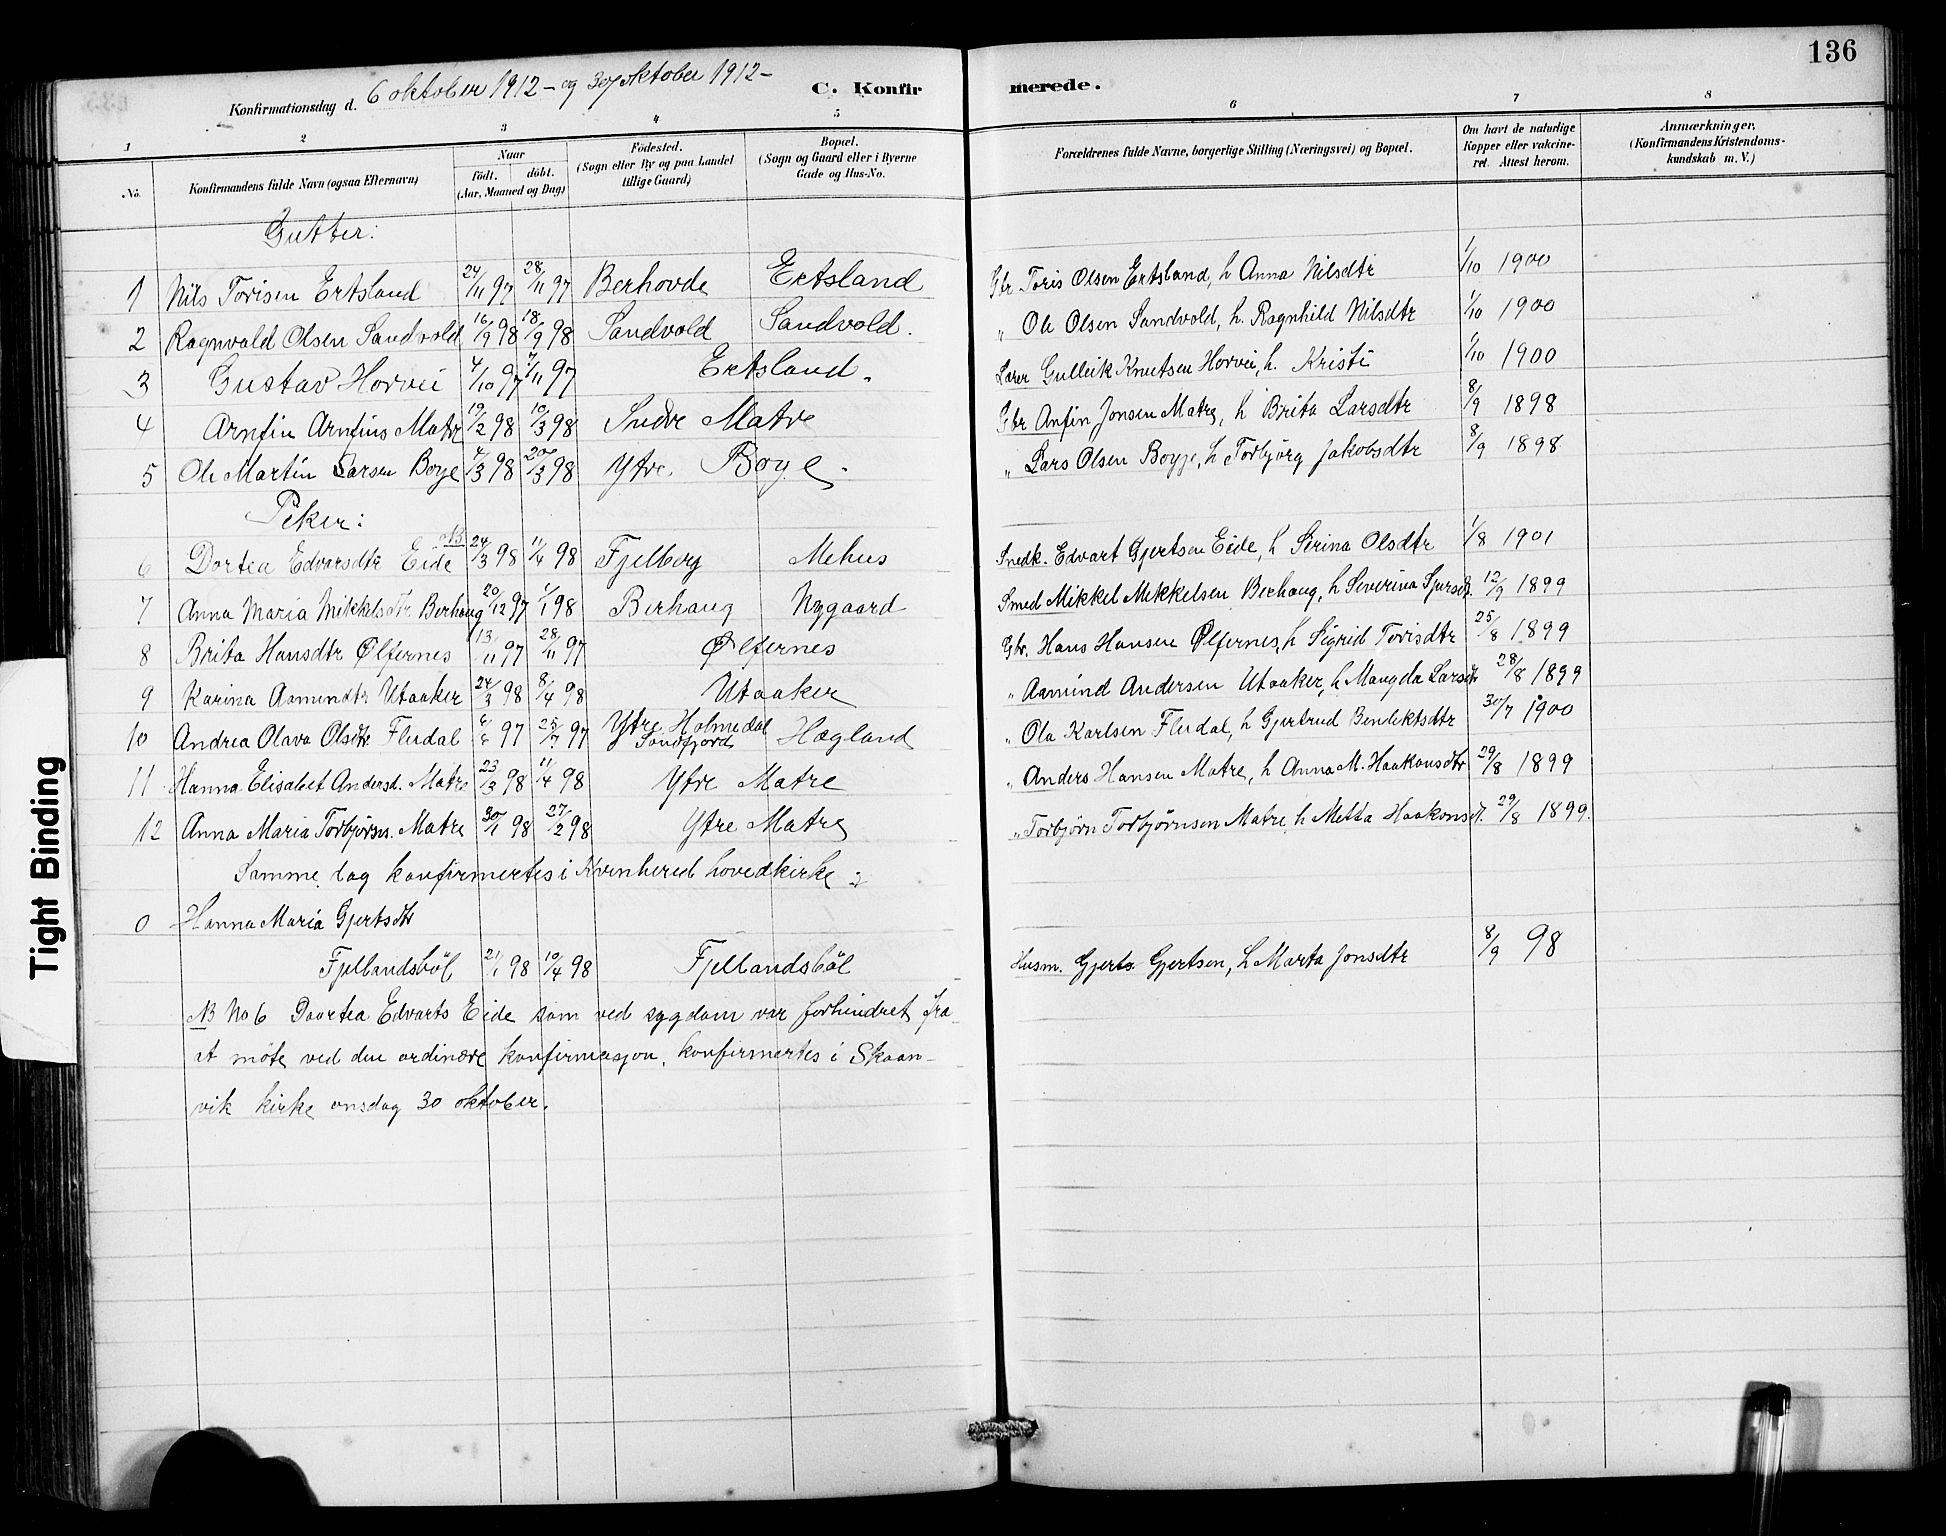 136
Konfirmationsdag d. 6 oktober 1912 - og 30 oktober 1912 -
C. Konfirmerede.
1 2 3 4 5 6 7 8
No.
Konfirmandens fulde Navn (ogsaa Efternavn)
Naar
født. døbt.
(Aar, Maaned og Dag)
Fødested.
(Sogn eller By og paa Landet
tillige Gaard)
Bopæl.
(Sogn og Gaard eller i Byerne
Gade og Hus-No.
Forældrenes fulde Navne, borgerlige Stilling (Næringsvei) og Bopæl.
Om havt de naturlige
Kopper eller vakcine-
ret. Attest herom.
Anmærkninger,
(Konfirmandens Kristendoms-
kundskab m. V.)
Gutter:
1 Nils Torisen Ertsland 24/11 97 28/11 97 Berhovde Ertsland Gbr Toris Olsen Ertsland, h Anna Nilsdtr 1/10 1900
2 Ragnvald Olsen Sandvold 16/9 98 18/9 98 Sandvold Sandvold. " Ole Olsen Sandvold, h. Ragnhild Nilsdtr 1/10 1900
3 Gustav Horvei 4/10 97 7/11 97 Ertsland. Lærer Gulleik Knutsen Horvei, h. Kristi 1/10 1900
4 Arnfin Arnfins Matre 19/2 98 10/3 98 Indre Matre Gbr Anfin Jonsen Matre, h Brita Larsdtr 8/9 1898
5 Ole Martin Larsen Boye 4/3 98 20/3 98 Ytre Boye. " Lars Olsen Boyje, h Torbjörg Jakobsdtr 8/9 1898
Peker:
6 Dortea Edvarsdtr Eide NB 24/3 98 11/4 98 Fjelberg Mehus Snedk. Edvart Gjertsen Eide, h Serina Olsdtr 1/8 1901
7 Anna Maria Mikkelsdtr. Berhaug 20/12 97 1/1 98 Berhaug Nygaard Smed Mikkel Mikkelsen Berhaug, h Severina 12/9 1899
8 Brita Hansdtr Ølfernes 13/11 97 28/11 97 Ølfernes Gbr. Hans Hansen Ølfernes, h Sigrid Torisdtr 25/8 1899
9 Karina Aamundtr Utaaker 24/3 98 8/4 98 Utaaker " Aamund Andersen Utaaker, h Mangda Larsdtr 28/8 1899
10 Andrea Olava Olsdtr. Fludal 6/6 97 25/7 97 Ytre Holmedal
Söndfjord Hægland " Ola Karlsen Fludal, h Gjertrud Bendiktsdtr 30/7 1900
11 Hanna Elisabet Andersd. Matre 23/3 98 11/4 98 Ytre Matre " Anders Hansen Matre, h Anna M. Haakonsdtr 29/8 1899
12 Anna Maria Torbjörsn. Matre 30/1 98 27/2 98 Ytre Matre " Torbjørn Torbjørnsen Matre, h Metta Haakonsd. 29/8 1899.
Samme dag konfirmertes i Kvinhered hovedkirke:
0 Hanna Maria Gjertsdtr
Fjellandsböl 21/1 98 10/4 98 Fjellandsböl Husm. Gjerts Gjertsen, h Marta Jonsdtr 8/9 98
NB No 6 Daartea Edvarts Eide som ved sygdom var forhindret fra
at møte ved den ordinære konfirmasjon, konfirmertes i Skaan-
vik kirke onsdag 30 oktober.
Tight Binding